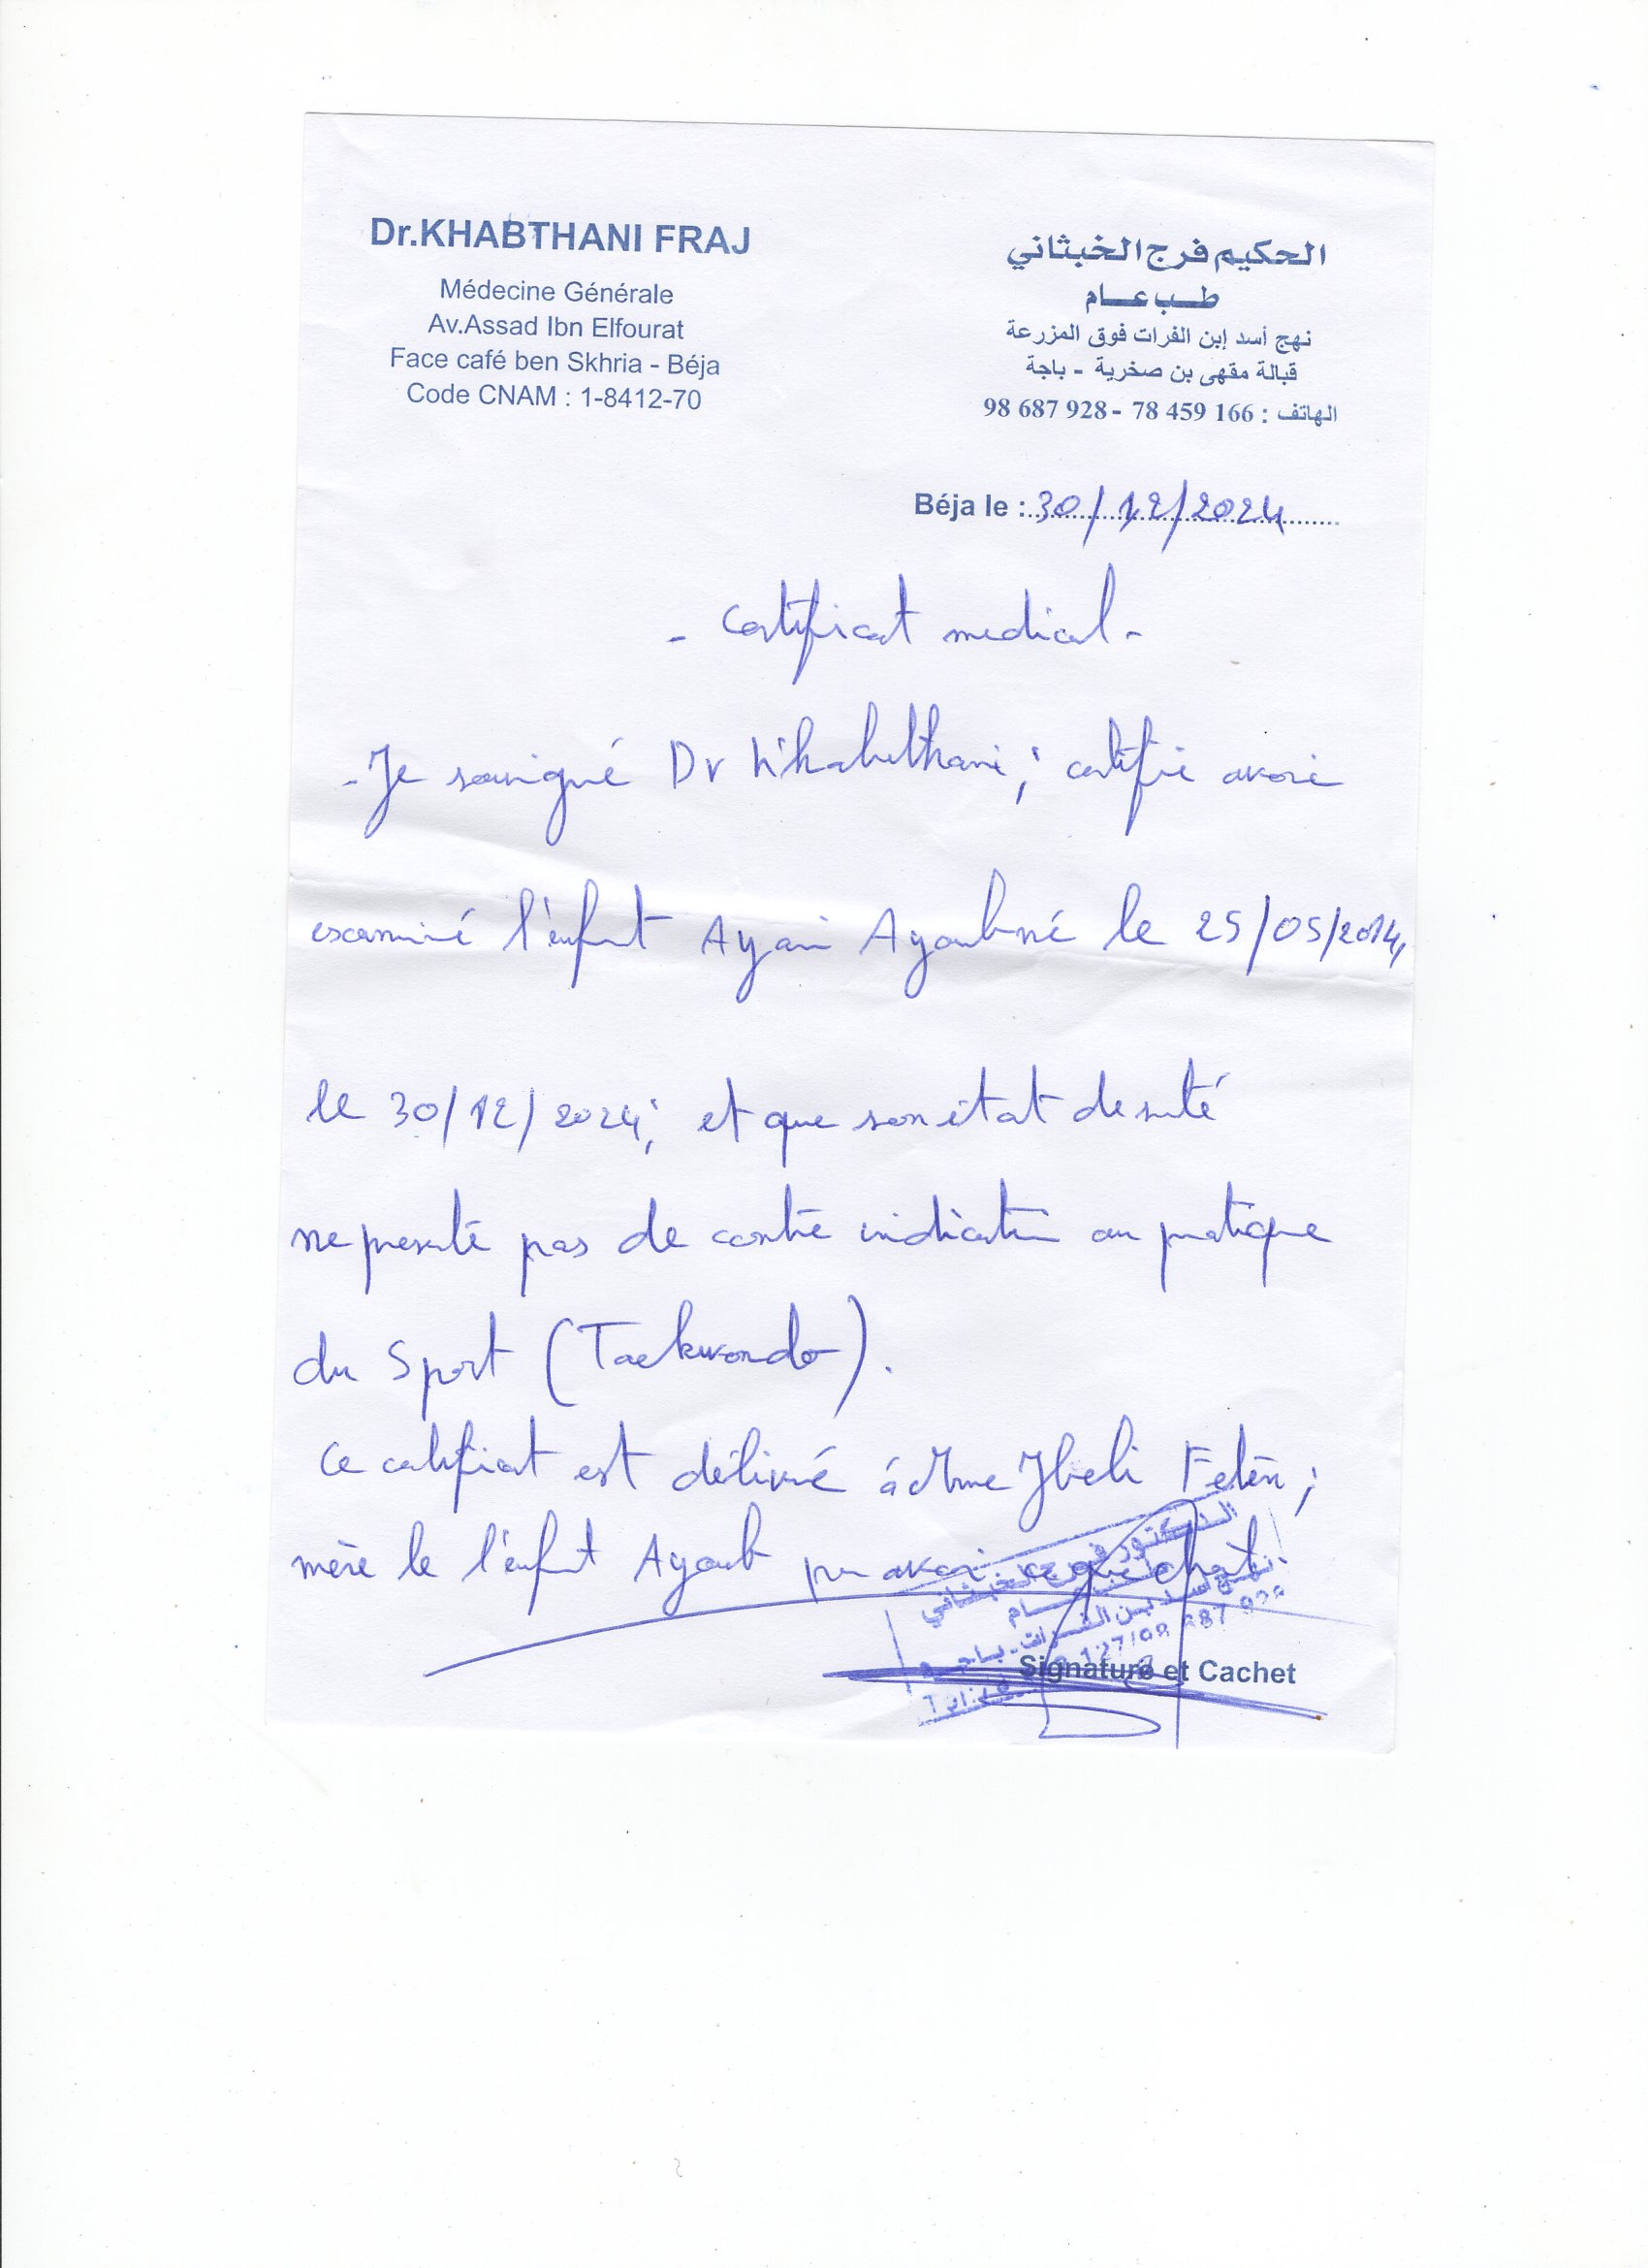 Dr.KHABTHANI FRAJ
Médecine Générale
Av.Assad Ibn Elfourat
Face café ben Skhria - Béja
Code CNAM : 1-8412-70
الحكيم فرج الخبثاني
طب عام
نهج أسد إبن الفرات فوق المزرعة
قبالة مقهى بن صخرية - باجة
الهاتف : 166 459 78 - 928 687 98
Béja le : 30/12/2024
- Certificat medical -
- Je sousigné Dr Khabethani ; certifie avoir
examiné l'enfant Ayari Ayoub né le 25/05/2014,
le 30/12/2024; et que son état de santé
ne presente pas de contre indication au pratique
du Sport (Taekwondo).
Ce certificat est délivré á Mme Jbeli Feten ;
mère de l'enfant Ayoub pour avoir
الدكتور فرج الخبثاني
طب عام
نهج أسد بن الفرات - باجة
Signature et Cachet